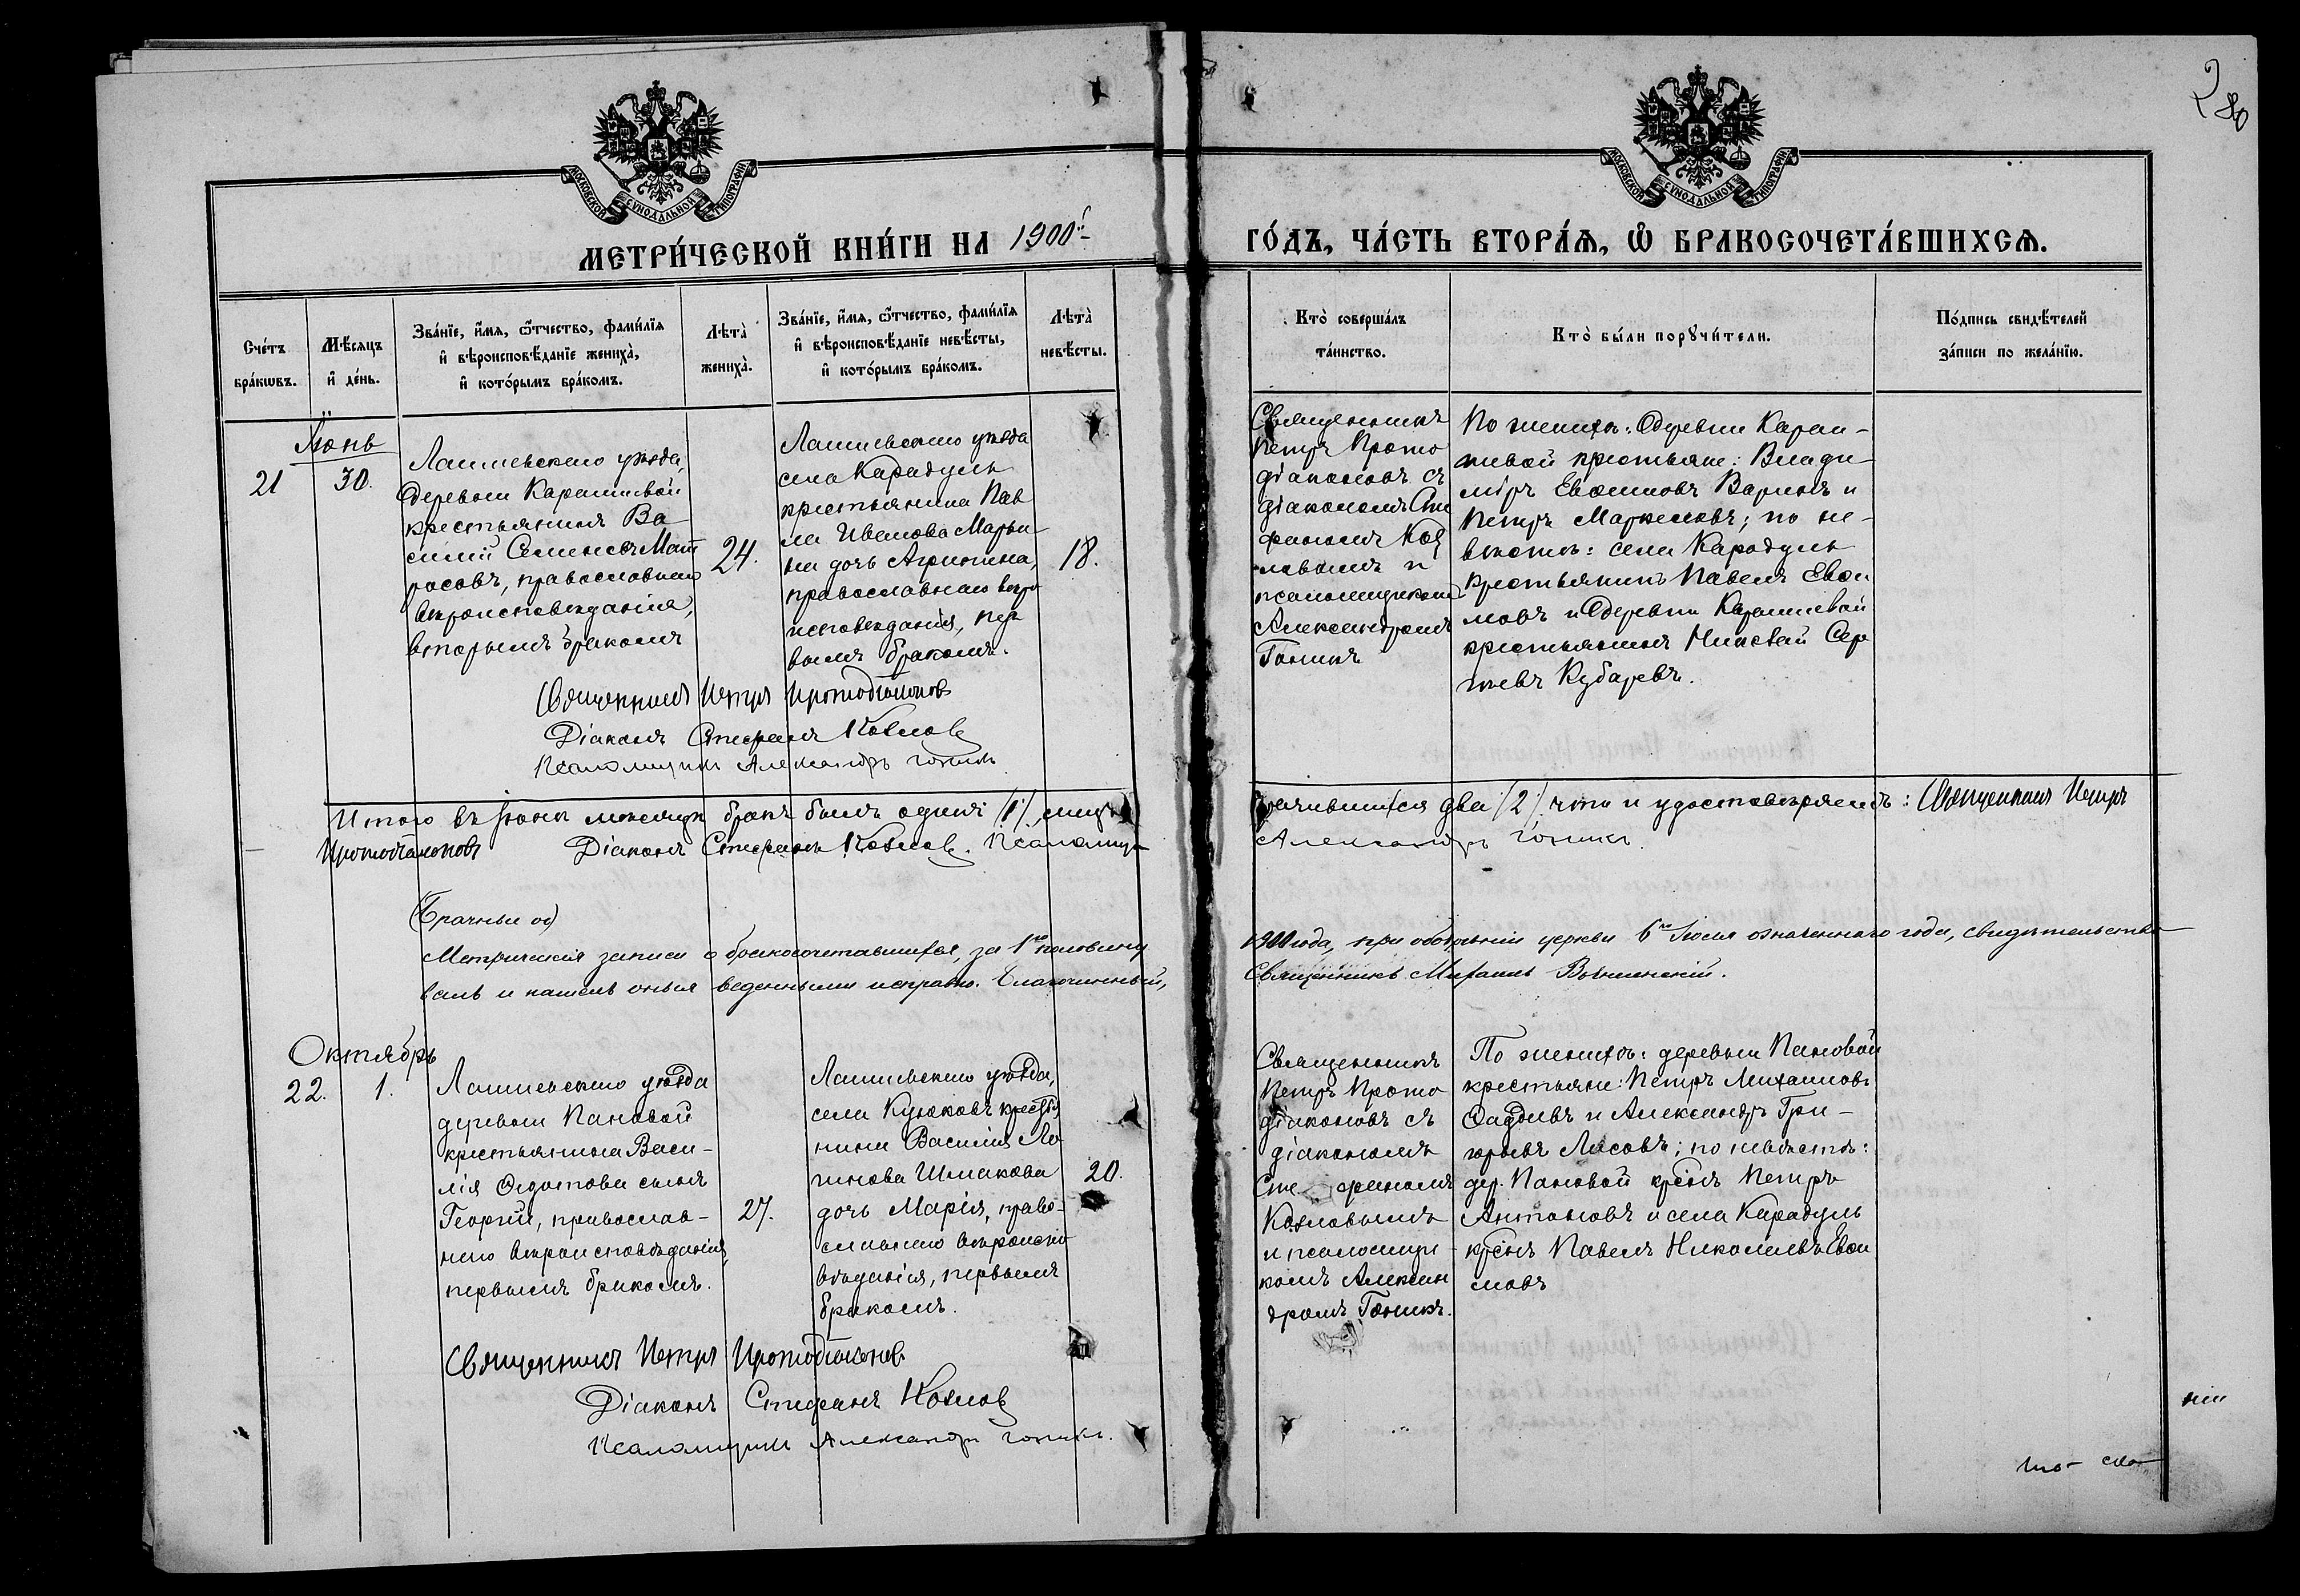 280
МОСКОВСКОЙ СѴНОДАЛЬНОЙ ТИПОГРАФІИ
МОСКОВСКОЙ СѴНОДАЛЬНОЙ ТИПОГРАФІИ
МЕТРИ́ЧЕСКОЙ КНИ́ГИ НА 1900й
ГО́ДЪ, ЧА́СТЬ ВТОРА́Ѧ, Ѽ БРАКОСОЧЕТА́ВШИХСѦ.
Сче́тъ бра́кѡвъ.
Мѣ́сѧцъ и҆ де́нь.
Зва́нїе, и҆́мѧ, ѻ҆́тчество, фами́лїѧ
и҆ вѣроисповѣ́данїе жениха̀,
и҆ кото́рымъ бра́комъ.
Лѣта̀ жениха̀.
Зва́нїе, и҆́мѧ, ѻ҆́тчество, фами́лїѧ
и҆ вѣроисповѣ́данїе невѣ́сты,
и҆ кото́рымъ бра́комъ.
Лѣта̀ невѣ́сты.
Кто̀ соверша́лъ
та́инство.
Кто̀ бы́ли порꙋчи́тели.
По́дпись свидѣ́телей
за́писи по жела́нїю.
Іюнь
21
30.
Лаишевскаго уѣзда,
деревни Карашивой
крестьянинъ Ва
силій Семеновъ Мат
росовъ, православнаго
вѣроисповѣданія,
вторымъ бракомъ
24.
Лаишевскаго уѣзда
села Карадуль
крестьянина Пав
ла Иванова Марьи
на дочь Агрипина,
православнаго вѣро
исповѣданія, пер
вымъ бракомъ.
18.
Священникъ
Петръ Прото
діаконовъ съ
діакономъ Сте
фаномъ Коз
ловымъ и
псаломщикомъ
Александромъ
Гоникъ
По женихѣ: деревни Караи-
шевой крестьяне: Влади
міръ Евоимовъ Варинъ и
Петръ Маркеловъ; по не-
вѣстѣ: села Карадуль
крестьянинъ Павелъ Евои
мовъ и деревни Карашивой
крестьянинъ Николай Сер
гѣевъ Кубаревъ.
Священникъ Петръ Протодіаконовъ
Діаконъ Стефанъ Козловъ
Псаломщикъ Александръ Гоникъ
Итого въ Іюнѣ мѣсяцѣ бракъ былъ одинъ /1/, лицъ
брачившихся два /2/ что и удостовѣряемъ: Священникъ Петръ
Протодіаконовъ Діаконъ Стефанъ Козловъ. Псаломщикъ
Александръ Гоникъ.
(Брачные об)
Метрическія записи о бракосочетавшихся, за 1ю половину
1900 года, при обозрѣніи церкви 6го Іюля означеннаго года, свидѣтельство
валъ и нашелъ оныя веденными исправно. Благочинный,
Священникъ Михаилъ
Октябрь
22.
1.
Лаишевскаго уѣзда
деревни Пановой
крестьянина Васи-
лія Ѳедотова сынъ
Георгій, православ-
наго вѣроисповѣданія,
первымъ бракомъ.
27.
Лаишевскаго уѣзда,
села Кулюковъ крестья
нина Василія Ло
гинова Шмакова
дочь Марія, право-
славнаго вѣроиспо
вѣданія, первымъ
бракомъ.
20.
Священникъ
Петръ Прото
діаконовъ съ
діакономъ
Сте фаномъ
Козловымъ
и псаломщи-
комъ Алексан
дромъ Гоникъ.
По женихѣ: деревни Пановой
крестьяне: Петръ Михаиловъ
Ѳаддѣевъ и Александръ Гри-
горьевъ Лисовъ; по невѣстѣ:
дер. Пановой крѣнъ Петръ
Антоновъ и села Карадуль
крѣнъ Павелъ Николаевъ Евои
мовъ
Священникъ Петръ Протодіаконовъ
Діаконъ Стефанъ Козловъ
Псаломщикъ Александръ Гоникъ.